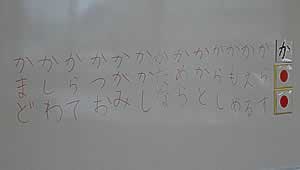 か
からす
かえる
かもめ
からし
かかと
かめら
かかし
かがみ
かつお
からて
かしわ
かまど